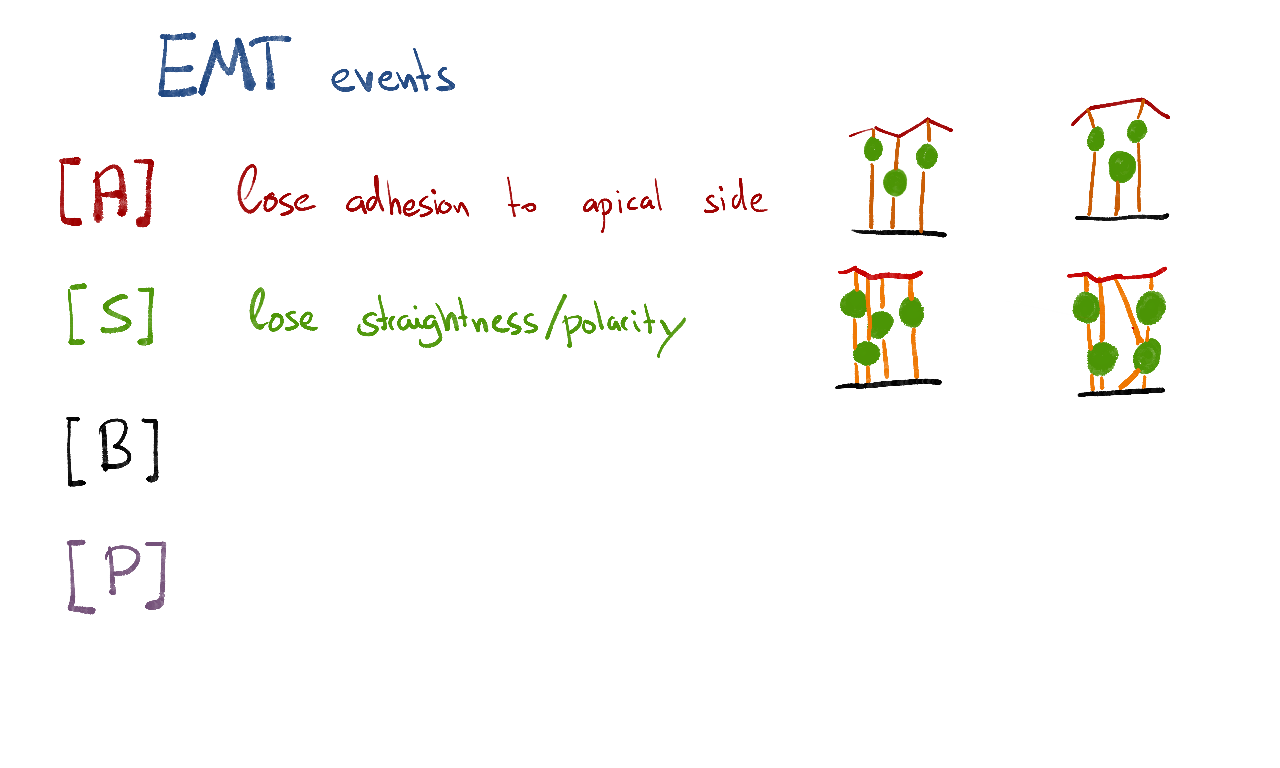 EMT events
[A] lose adhesion to apical side
[S] lose straightness/polarity
[B]
[P]